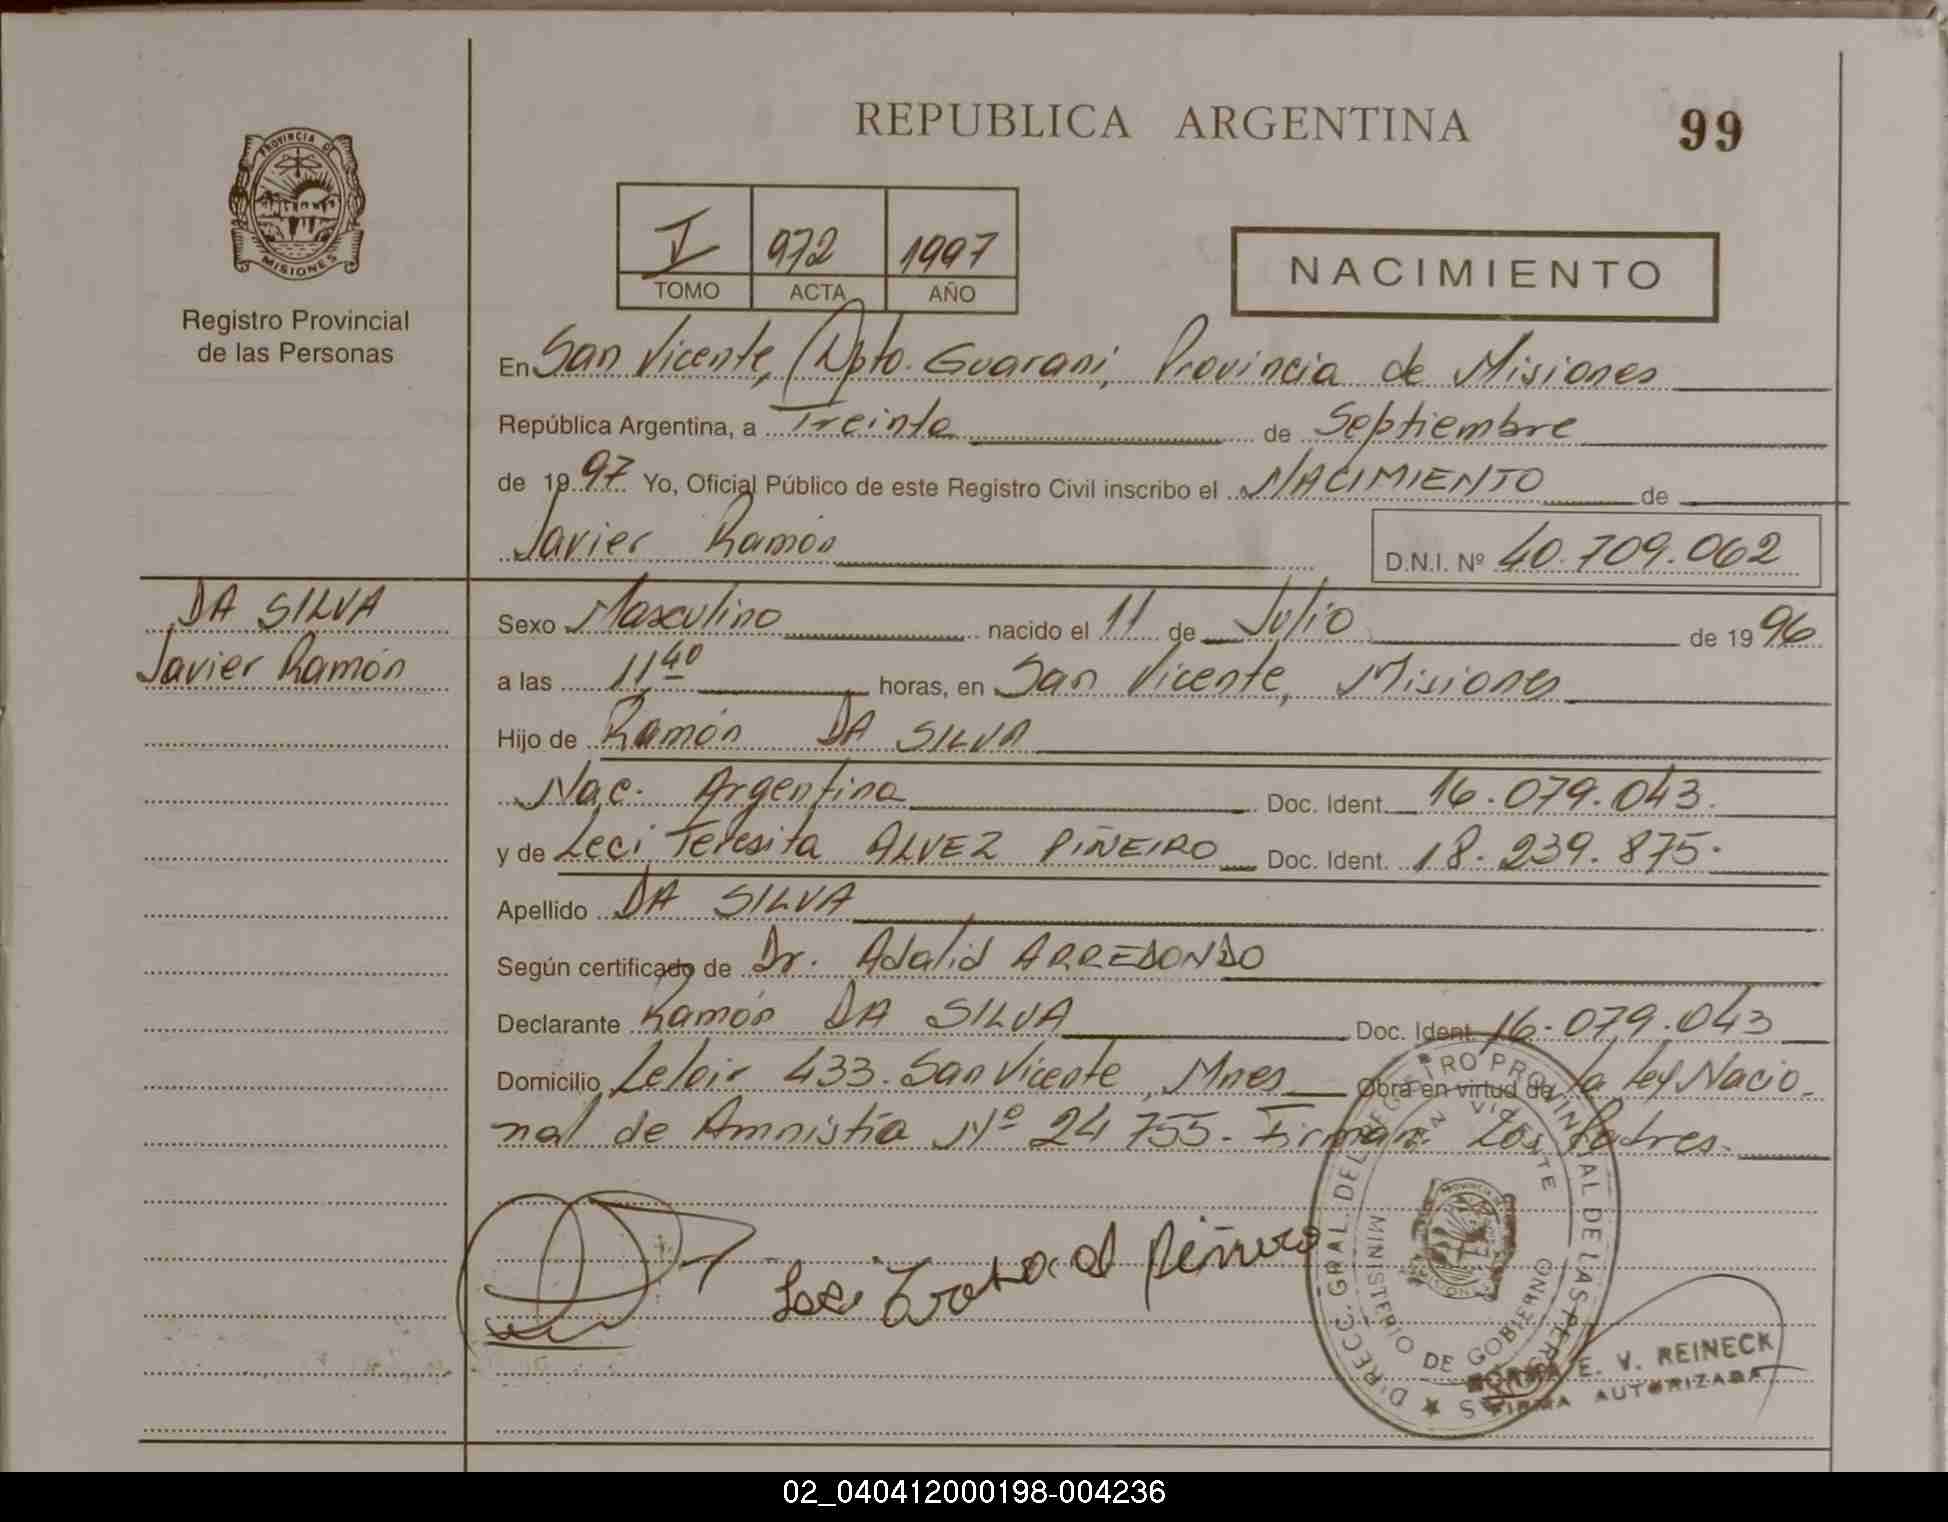 REPUBLICA ARGENTINA
99
PROVINCIA DE
MISIONES
Registro Provincial
de las Personas
I 972 1997
TOMO ACTA AÑO
NACIMIENTO
En San Vicente, Dpto. Guarani, Provincia de Misiones
República Argentina, a Treinta de Septiembre
de 1997 Yo, Oficial Público de este Registro Civil inscribo el NACIMIENTO de
Javier Ramón
D.N.I. Nº 40.709.062
DA SILVA
Javier Ramón
Sexo Masculino nacido el 11 de Julio de 1996
a las 11 40 horas, en San Vicente, Misiones
Hijo de Ramón DA SILVA
Nac. Argentina Doc. Ident. 16.079.043.
y de Leci Teresita ALVEZ PIÑEIRO Doc. Ident. 18.239.875.
Apellido DA SILVA
Según certificado de Dr. Adalid ARREDONDO
Declarante Ramón DA SILVA Doc. Ident. 16.079.043
Domicilio Leloir 433. San Vicente, Mnes Obra en virtud de la ley Nacio-
nal de Amnistía Nº 24755. Firman Los Padres.
DIRECC. GRAL. DEL REGISTRO PROVINCIAL DE LAS PERSONAS
SAN VICENTE
MINISTERIO DE GOBIERNO
NORMA E. V. REINECK
FIRMA AUTORIZADA
02_040412000198-004236